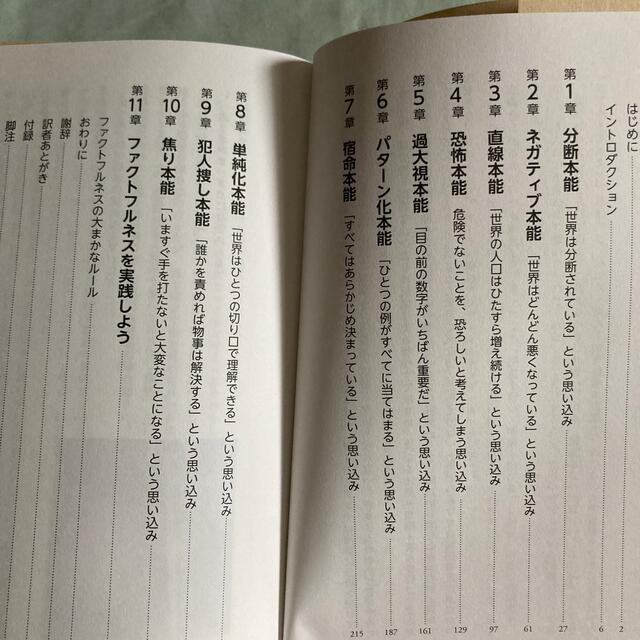 はじめに 2
イントロダクション 6
第1章 分断本能 「世界は分断されている」という思い込み 27
第2章 ネガティブ本能 「世界はどんどん悪くなっている」という思い込み 61
第3章 直線本能 「世界の人口はひたすら増え続ける」という思い込み 97
第4章 恐怖本能 危険でないことを、恐ろしいと考えてしまう思い込み 129
第5章 過大視本能 「目の前の数字がいちばん重要だ」という思い込み 161
第6章 パターン化本能 「ひとつの例がすべてに当てはまる」という思い込み 187
第7章 宿命本能 「すべてはあらかじめ決まっている」という思い込み 215
第8章 単純化本能 「世界はひとつの切り口で理解できる」という思い込み
第9章 犯人捜し本能 「誰かを責めれば物事は解決する」という思い込み
第10章 焦り本能 「いますぐ手を打たないと大変なことになる」という思い込み
第11章 ファクトフルネスを実践しよう
ファクトフルネスの大まかなルール
おわりに
謝辞
訳者あとがき
付録
脚注